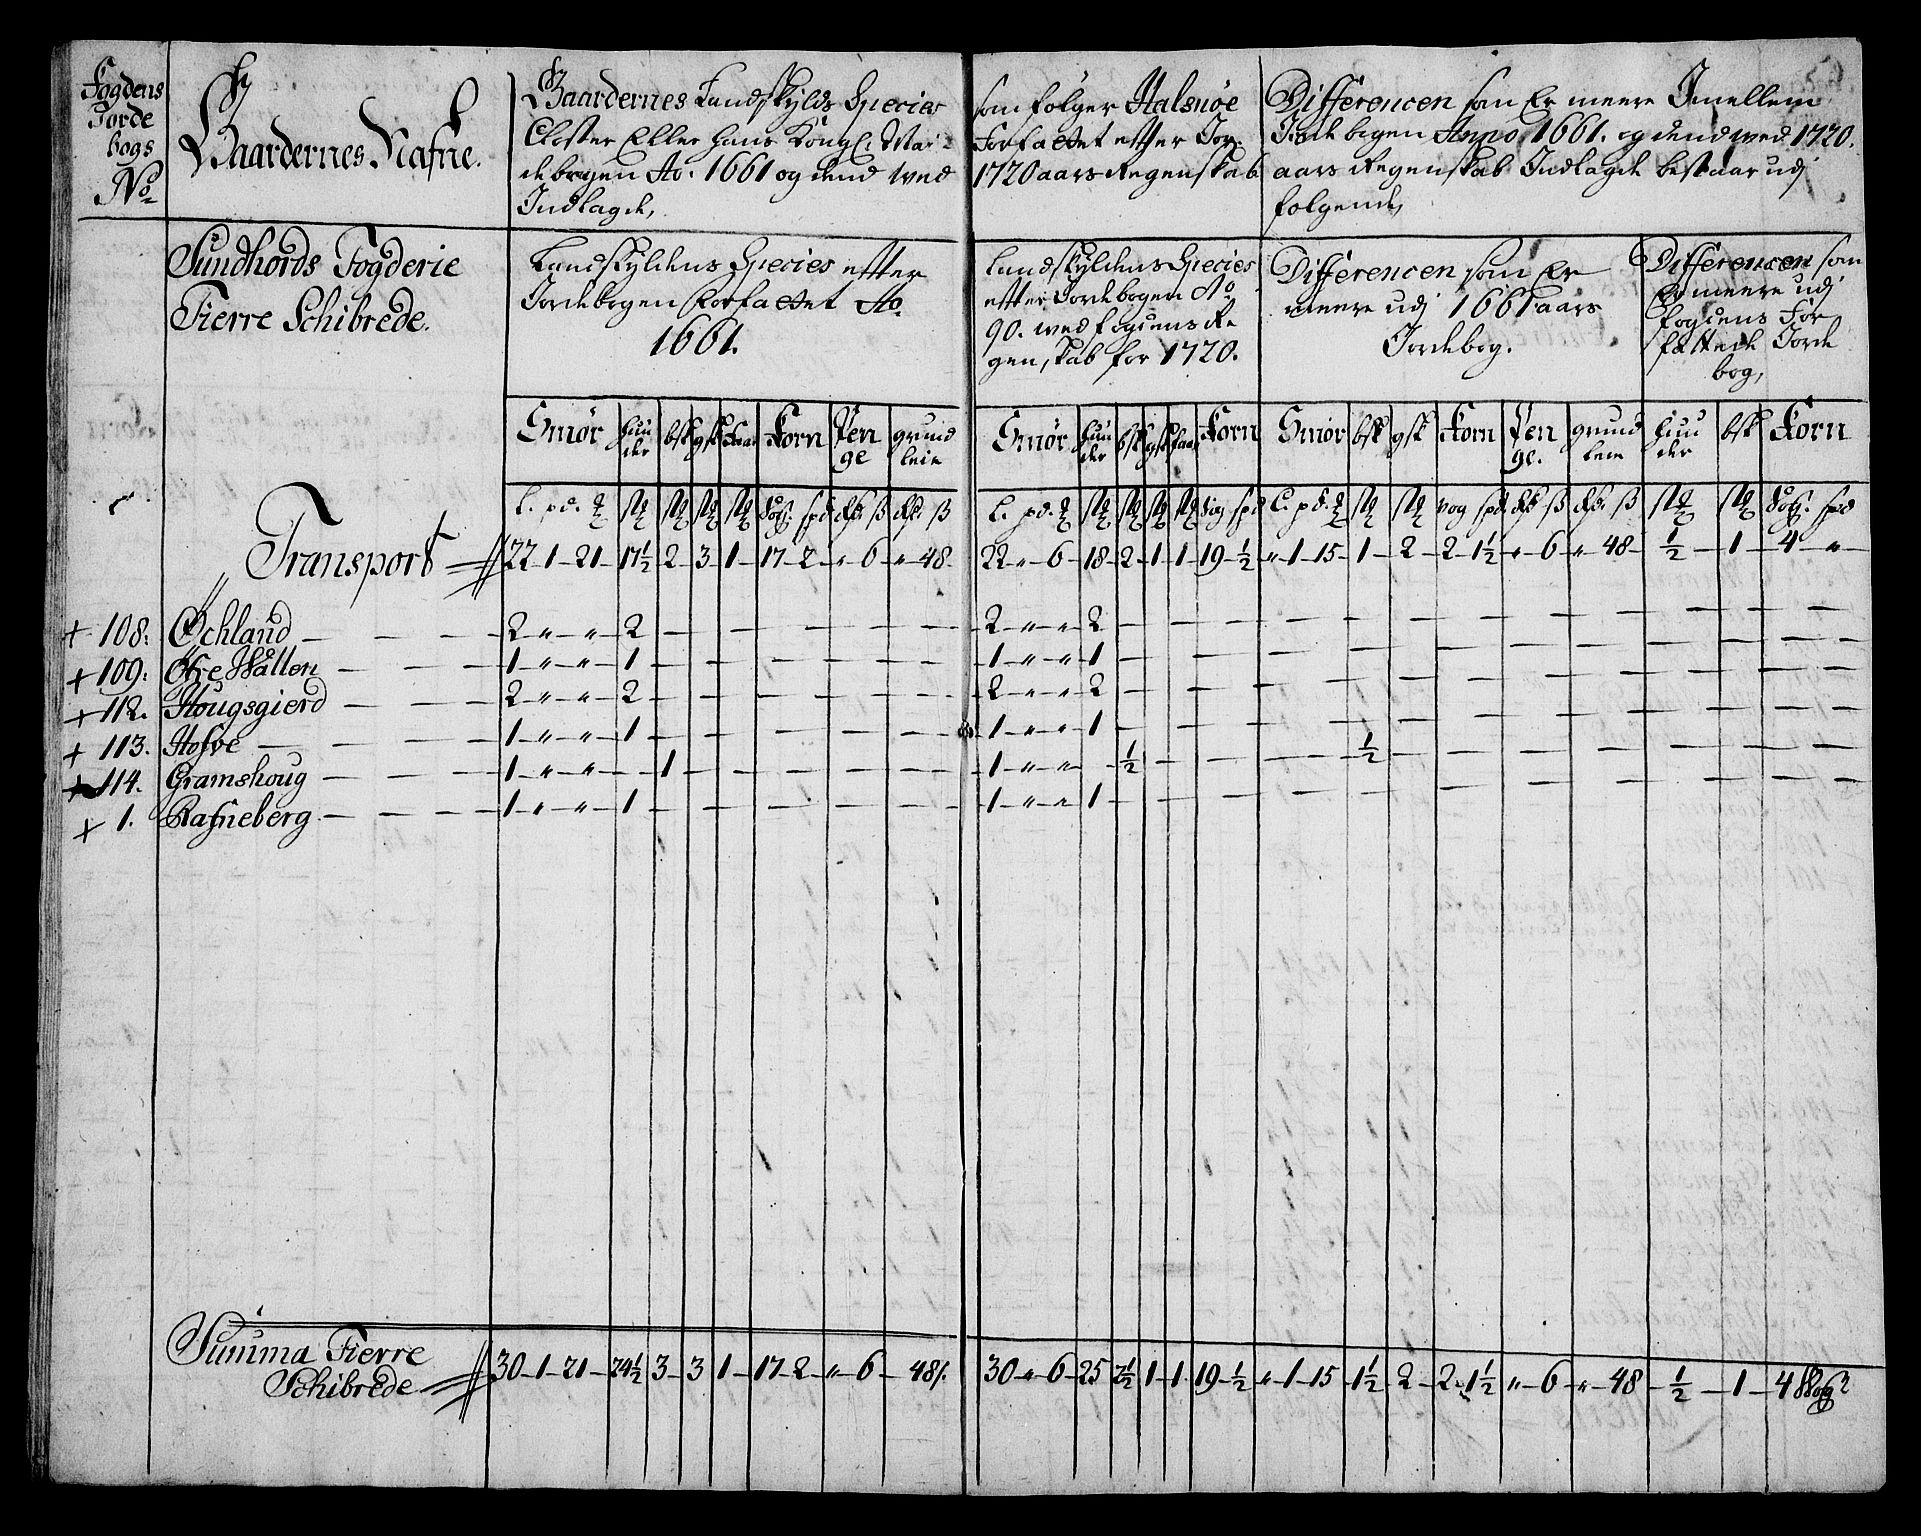 Fogdens
Jorde
bogs
No
Gaardernes Nafne.
Gaardernes Landskylds Species
Closter Eller hans Kongl. Mai
debogen Ao. 1661 og dend wed
Indlagde,
som følger Halsnøe
Forfattet etter Jor
1720 aars Regenskab
Differencen som Er meere Imellem
Jordebogen Anno 1661. og dend wed 1720.
aars Regenskab Indlagde bestaar udj
følgende,
Sundhords Fogderie
Fierre Schibrede.
Landskyldens Species etter
Jordebogen forfattet Ao
1661.
Landskyldens Species
etter Jordebogen No
90. wed fogdens Re
genskab for 1720.
Differencen som Er
meere udj 1661 aars
Jordebog.
Differencen som
Er meere udj
fogdens For
fattede Jorde
bog,
Smør huu der bsk gsk Korn Pen ge grund leie
Smør huu der bsk gsk Korn Smør bsk gsk Korn Pen ge. grund leie huu der bsk Korn
L. pd.
Transport 22 - 1 - 21 - 17½ 2 - 3 - 1 - 17 - 2 - " - 6 - " - 48 - 22 - " - 6 - 18 - 2 - 1 - 1 - 19 - ½ - " - 1 - 15 - 1 - 2 - 2 - 1½ - " - 6 - " - 48 - ½ - 1 - 4 - "
+ 108. Øchland 2 - " - " - 2 - 2 - " - " - 2 -
+ 109. Øfre Watten 1 - " - " - 1 - 1 - " - " - 1 -
+ 112. Hougsgierd 2 - " - " - 2 - 2 - " - " - 2 -
+ 113. Hofve 1 - " - " - 1 - 1 - " - " - 1 -
+ 114. Gramshoug 1 - " - " - 1 - 1 - " - " - ½ - ½ -
+ 1. Rafneberg 1 - " - " - 1 - 1 - " - " - 1 -
Summa Fierre
Schibrede 30 - 1 - 21 - 24½ 3 - 3 - 1 - 17 - 2 - " - 6 - 48 30 - " - 6 - 25 2½ 1 - 1 - 19 - ½ - " - 1 - 15 - 1½ - 2 - 2 - 1½ - " - 6 - " - 48 - ½ - 1 - 4 Wog